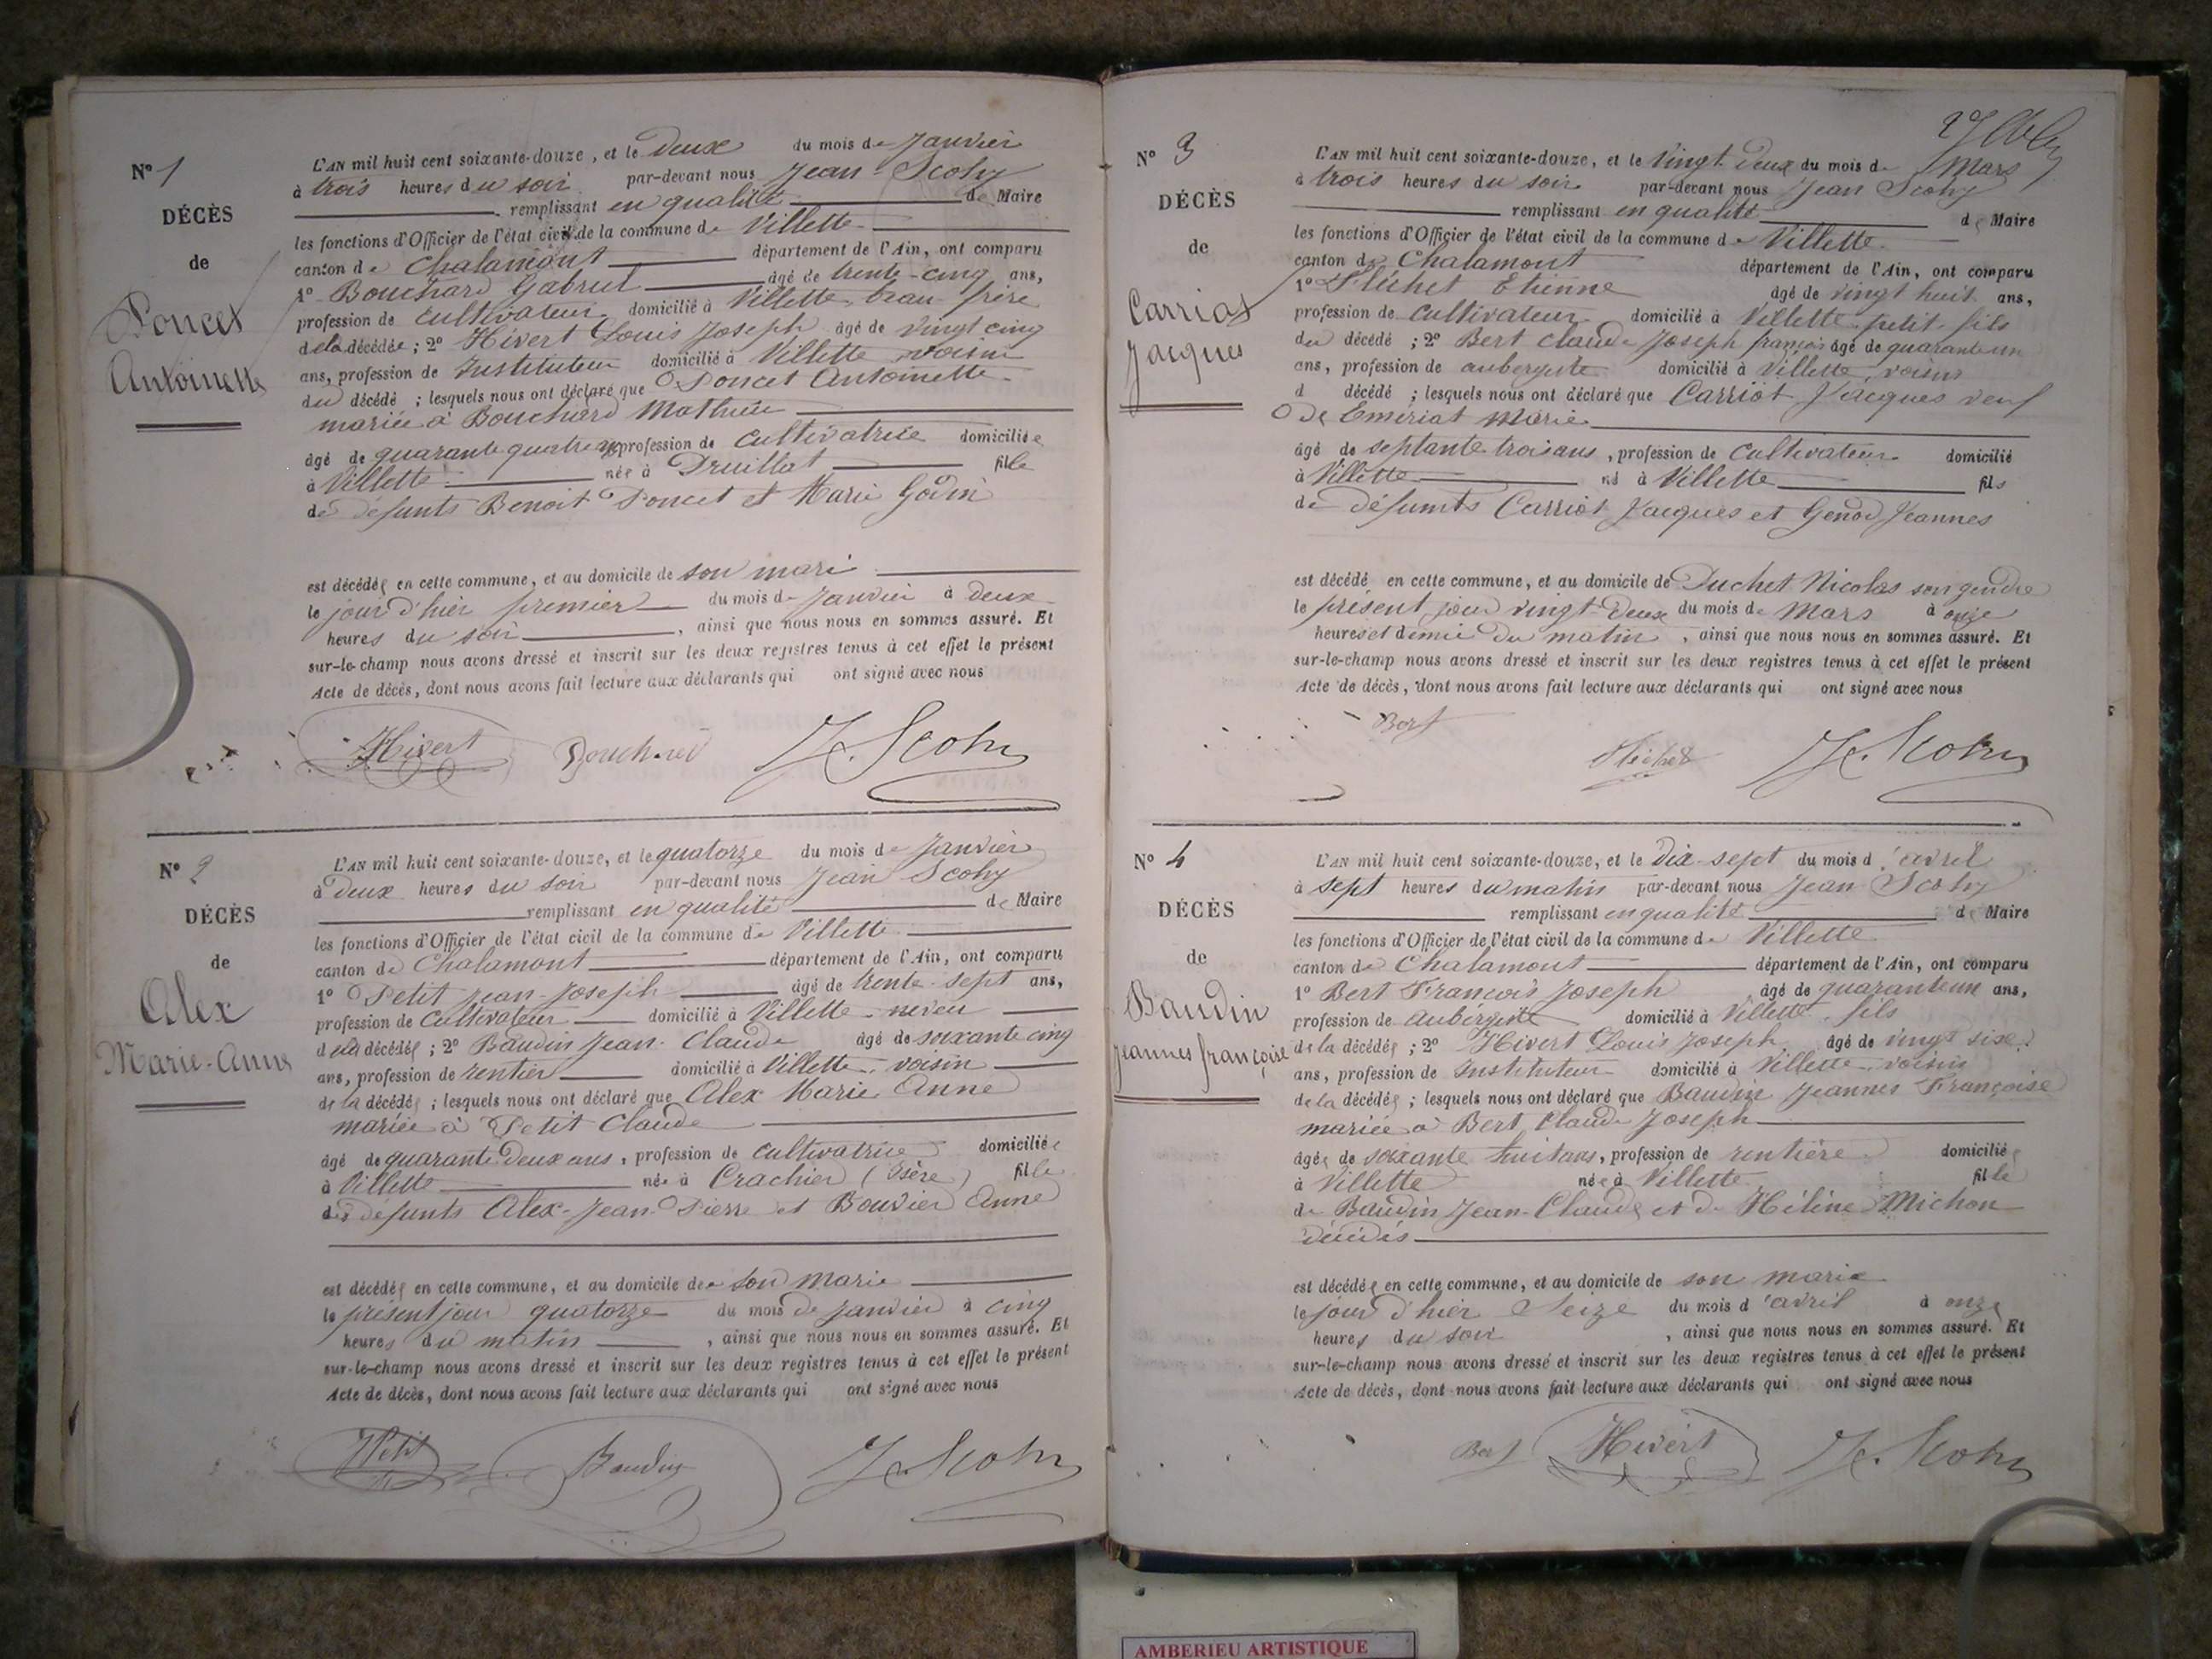 N° 1
DÉCÈS
de
Poncet
Antoinette
L'AN mil huit cent soixante-douze, et le Deux du mois de Janvier
à trois heures du soir par-devant nous Jean Scohy
remplissant en qualité de Maire
les fonctions d'Officier de l'état civil de la commune de Villette
canton de Chalamont département de l'Ain, ont comparu
1° Bouchard Gabriel âgé de trente-cinq ans,
profession de cultivateur domicilié à Villette beau-frère
de la décédée ; 2° Hivert Louis Joseph âgé de vingt cinq
ans, profession de Instituteur domicilié à Villette voisin
du décédé ; lesquels nous ont déclaré que Poncet Antoinette
mariée à Bouchard Mathieu
âgé de quarante quatre ans profession de cultivatrice domiciliée
à Villette née à Druillat fille
de défunts Benoit Poncet et Marie Godin
est décédée en cette commune, et au domicile de son mari
le jour d'hier premier du mois de Janvier à deux
heures du soir, ainsi que nous nous en sommes assuré. Et
sur-le-champ nous avons dressé et inscrit sur les deux registres tenus à cet effet le présent
Acte de décès, dont nous avons fait lecture aux déclarants qui ont signé avec nous
Hivert Bouchard J. Scohy
N° 2
DÉCÈS
de
Alex
Marie-Anne
L'AN mil huit cent soixante-douze, et le quatorze du mois de Janvier
à Deux heures du soir par-devant nous Jean Scohy
remplissant en qualité de Maire
les fonctions d'Officier de l'état civil de la commune de Villette
canton de Chalamont département de l'Ain, ont comparu
1° Petit Jean-Joseph âgé de trente-sept ans,
profession de cultivateur domicilié à Villette neveu
de la décédée ; 2° Baudin Jean-Claude âgé de soixante cinq
ans, profession de rentier domicilié à Villette, voisin
de la décédée ; lesquels nous ont déclaré que Alex Marie Anne
mariée à Petit Claude
âgé de quarante-deux ans, profession de cultivatrice domiciliée
à Villette née à Crachier (Isère) fille
des défunts Alex-Jean-Pierre et Bouvier Anne
est décédée en cette commune, et au domicile de son marie
le présent jour quatorze du mois de Janvier à cinq
heures du matin, ainsi que nous nous en sommes assuré. Et
sur-le-champ nous avons dressé et inscrit sur les deux registres tenus à cet effet le présent
Acte de décès, dont nous avons fait lecture aux déclarants qui ont signé avec nous
Petit Baudin J. Scohy
N° 3
DÉCÈS
de
Carriot
Jacques
L'AN mil huit cent soixante-douze, et le Vingt-Deux du mois de Mars
à trois heures du soir par-devant nous Jean Scohy
remplissant en qualité de Maire
les fonctions d'Officier de l'état civil de la commune de Villette
canton de Chalamont département de l'Ain, ont comparu
1° Fléchet Etienne âgé de vingt huit ans,
profession de cultivateur domicilié à Villette petit-fils
du décédé ; 2° Bert Claude Joseph françois âgé de quarante un
ans, profession de aubergiste domicilié à Villette, voisin
d décédé ; lesquels nous ont déclaré que Carriot Jacques veuf
de Emeriat Marie
âgé de septante trois ans, profession de cultivateur domicilié
à Villette né à Villette fils
de défunts Carriot Jacques et Genod Jeannes
est décédé en cette commune, et au domicile de Duchet Nicolas son gendre
le présent jour vingt-deux du mois de Mars à onze
heures et demie du matin, ainsi que nous nous en sommes assuré. Et
sur-le-champ nous avons dressé et inscrit sur les deux registres tenus à cet effet le présent
Acte de décès, dont nous avons fait lecture aux déclarants qui ont signé avec nous
Bert Fléchet J. Scohy
N° 4
DÉCÈS
de
Baudin
Jeannes françoise
L'AN mil huit cent soixante-douze, et le Dix-sept du mois d'avril
à sept heures du matin par-devant nous Jean Scohy
remplissant en qualité de Maire
les fonctions d'Officier de l'état civil de la commune de Villette
canton de Chalamont département de l'Ain, ont comparu
1° Bert François Joseph âgé de quarante un ans,
profession de aubergiste domicilié à Villette, fils
de la décédée ; 2° Hivert Louis Joseph âgé de vingt six
ans, profession de Instituteur domicilié à Villette voisin
de la décédée ; lesquels nous ont déclaré que Baudin Jeannes Françoise
mariée à Bert Claude Joseph
âgée de soixante huit ans, profession de rentière domiciliée
à Villette née à Villette fille
de Baudin Jean-Claude et de Hélène Michon
décédés
est décédée en cette commune, et au domicile de son marie
le jour d'hier Seize du mois d'avril à onze
heures du soir, ainsi que nous nous en sommes assuré. Et
sur-le-champ nous avons dressé et inscrit sur les deux registres tenus à cet effet le présent
Acte de décès, dont nous avons fait lecture aux déclarants qui ont signé avec nous
Bert Hivert J. Scohy
AMBERIEU ARTISTIQUE